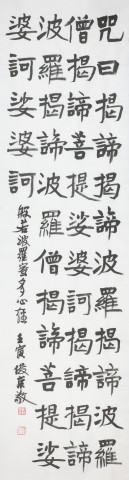 咒曰揭諦揭諦波羅揭諦波羅
僧揭諦菩提娑婆訶揭諦揭諦
波羅揭諦波羅僧揭諦菩提娑
婆訶娑婆訶
般若波羅蜜多心經 壬寅